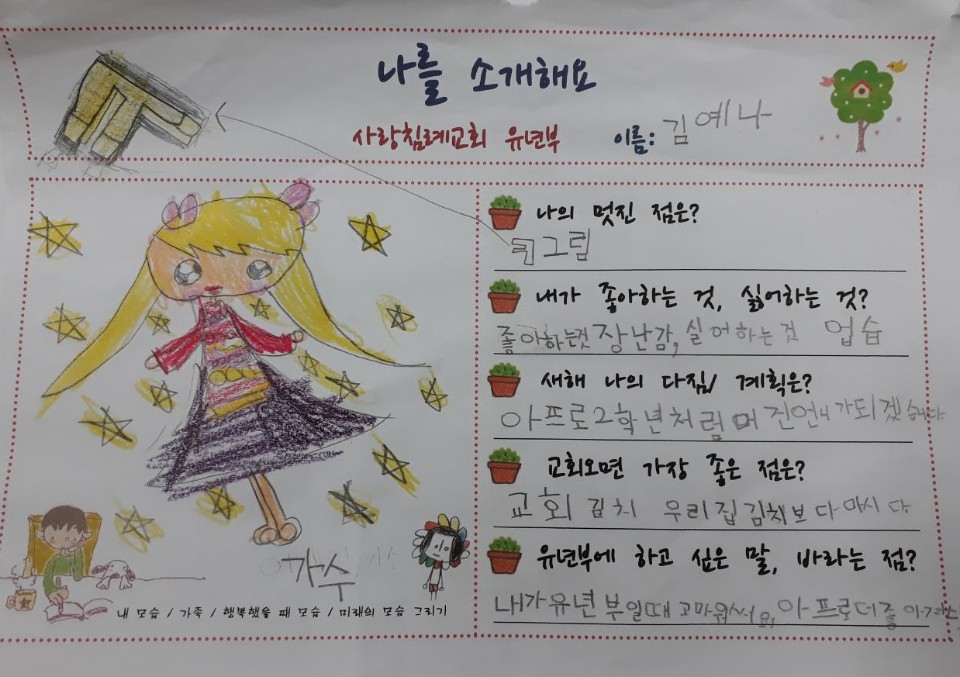 나를 소개해요
사랑침례교회 유년부 이름: 김예나
나의 멋진 점은?
그림
내가 좋아하는 것, 싫어하는 것?
좋아하는것 장난감, 실어하는건 업습
새해 나의 다짐/ 계획은?
아프로2학년처럼 머 언니가되겠습니다
교회오면 가장 좋은 점은?
교회 김치 우리집김치보다마시다
유년부에 하고 싶은 말, 바라는 점?
내가유년부일때 고마워써요, 아프로더
가수
내 모습 / 가족 / 행복했을 때 모습 / 미래의 모습 그리기